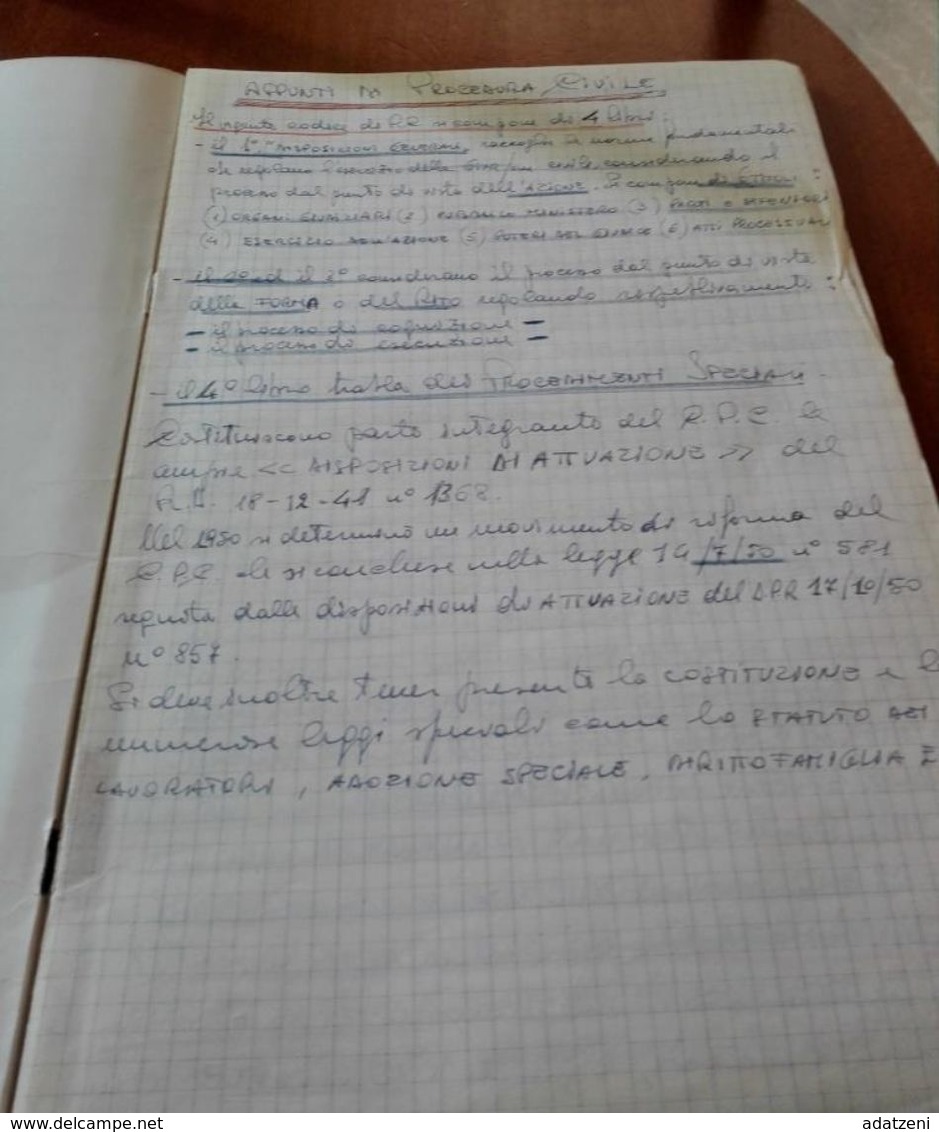 APPUNTI DI PROCEDURA CIVILE
Il vigente codice di P.C. si compone di 4 libri:
- il 1° "DISPOSIZIONI GENERALI", raccoglie le norme fondamentali
che regolano l'esercizio della civile, considerando il
processo dal punto di vista dell'AZIONE. Si compone di 6 TITOLI:
(1) ORGANI GIUDIZIARI (2) PUBBLICO MINISTERO (3) PARTI E DIFENSORI
(4) ESERCIZIO DELL'AZIONE (5) POTERI DEL GIUDICE (6) ATTI PROCESSUALI
- il ed il 3° considerano il processo dal punto di vista
della FORMA o del RITO regolando rispettivamente:
- il processo di cognizione -
- il processo di esecuzione -
- il 4° libro tratta dei PROCEDIMENTI SPECIALI -
Costituiscono parte integrante del C.P.C. le
ampie << DISPOSIZIONI DI ATTUAZIONE >> del
R.D. 18-12-41 n° 1368.
Nel 1950 si determinò un movimento di riforma del
C.P.C. che si concluse nella legge 14/7/50 n° 581
seguita dalle disposizioni di ATTUAZIONE del DPR 17/10/50
n° 857.
Si deve inoltre tener presente la COSTITUZIONE e le
numerose leggi speciali come lo STATUTO DEI
LAVORATORI, ADOZIONE SPECIALE, DIRITTO FAMIGLIA E
www.delcampe.net
adatzeni